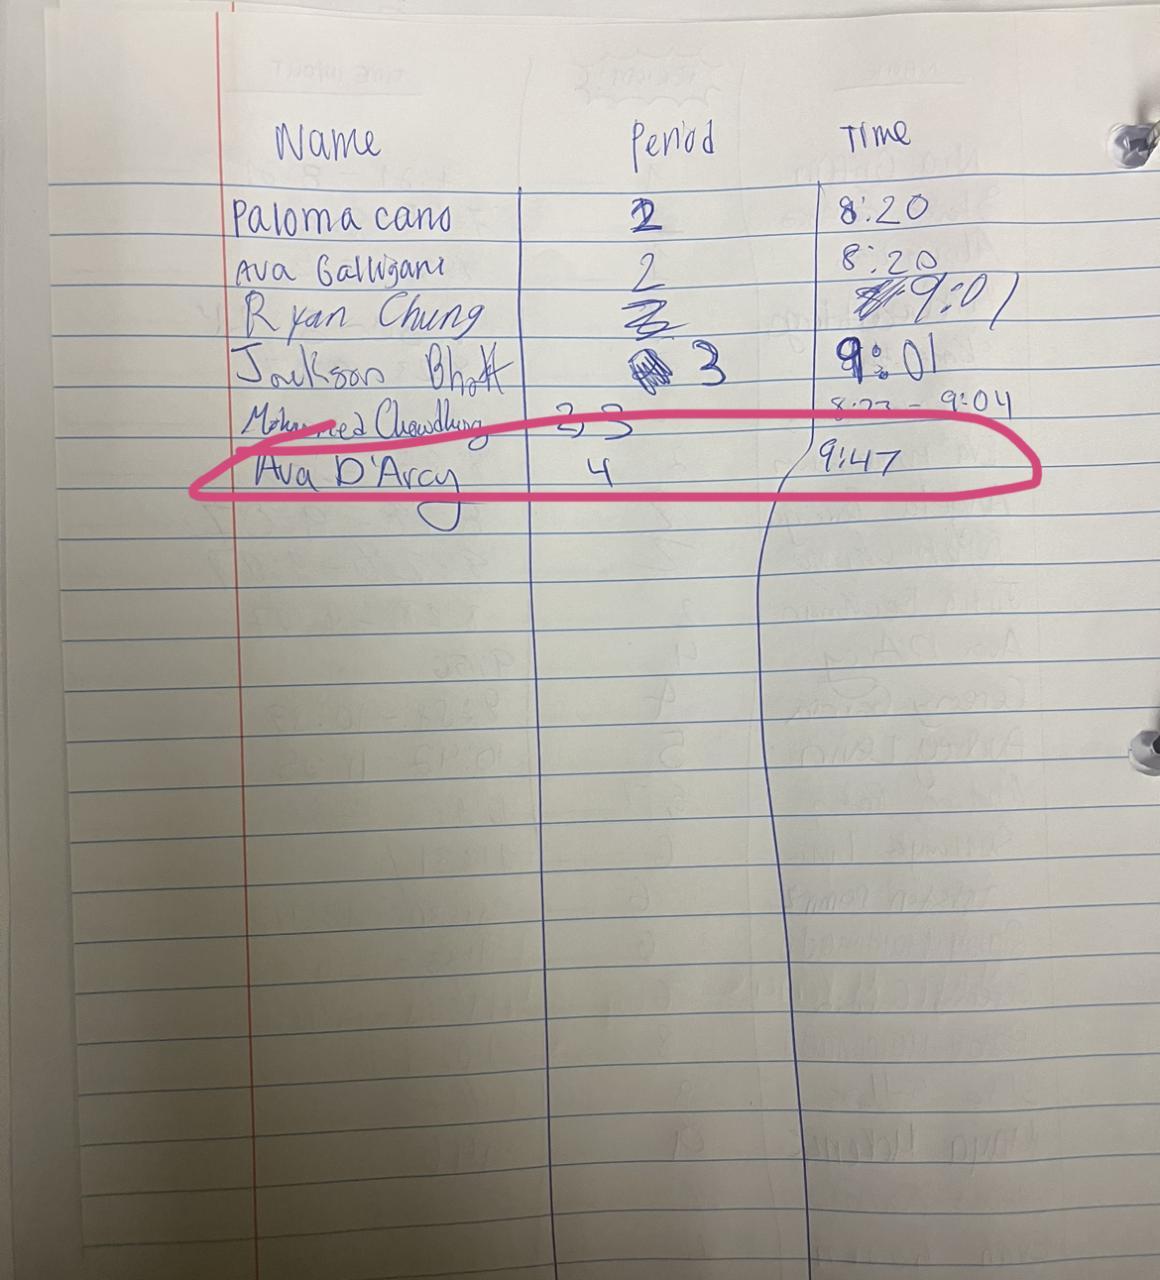 Name Period Time
Paloma cano 2 8:20
Ava Galligani 2 8:20
Ryan Chung 9:01
Jackson Bhatt 3 9:01
Mohammed Chowdhury 2 3 - 9:04
Ava D'Arcy 4 9:47